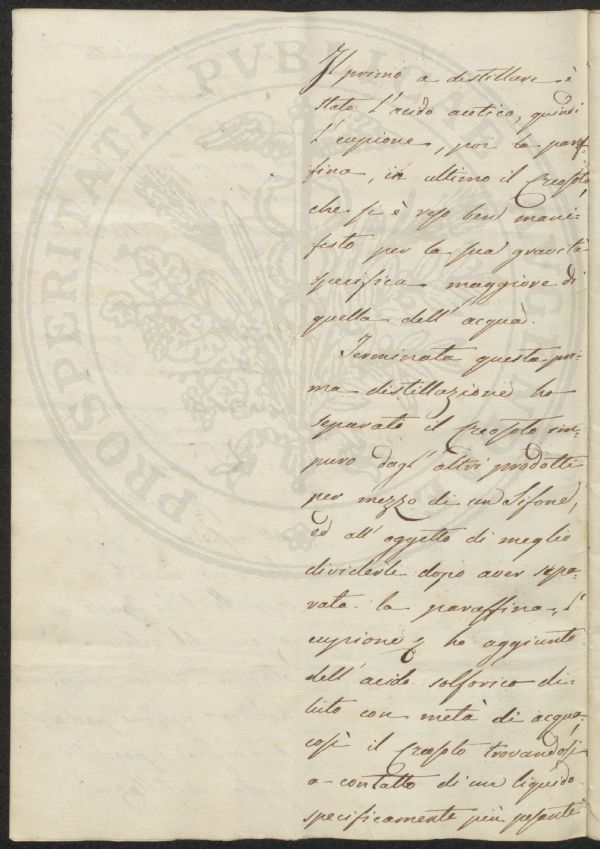 Il primo a destillare è
stato l'acido acetico, quindi
l'eupione, poi la paraf-
fina, in ultimo il Creosoto,
che si è reso ben mani-
festo per la sua gravità
specifica maggiore di
quella dell'acqua.
Terminata questa pri-
ma distillazione ho
separato il Creosoto im-
puro dagl'altri prodotti
per mezzo di un Sifone,
ed all'oggetto di meglio
dividerle dopo aver sepa-
rata la paraffina, l'
eupione &c ho aggiunto
dell'acido solforico di-
luto con metà di acqua,
così il Creosoto trovandosi
a contatto di un liquido
specificamente più pesante
PROSPERITATI PVBLICAE